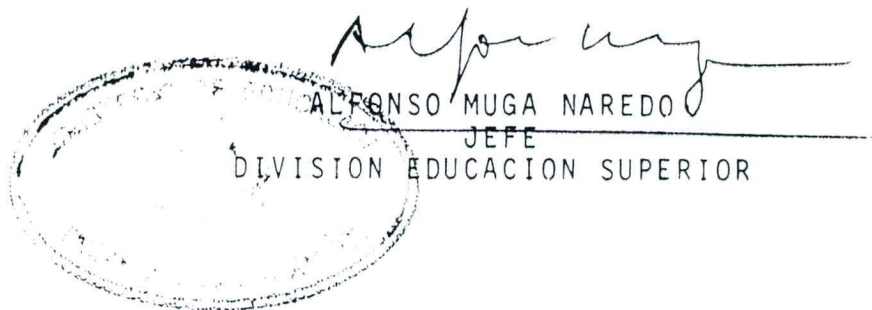 ALFONSO MUGA NAREDO
JEFE
DIVISION EDUCACION SUPERIOR